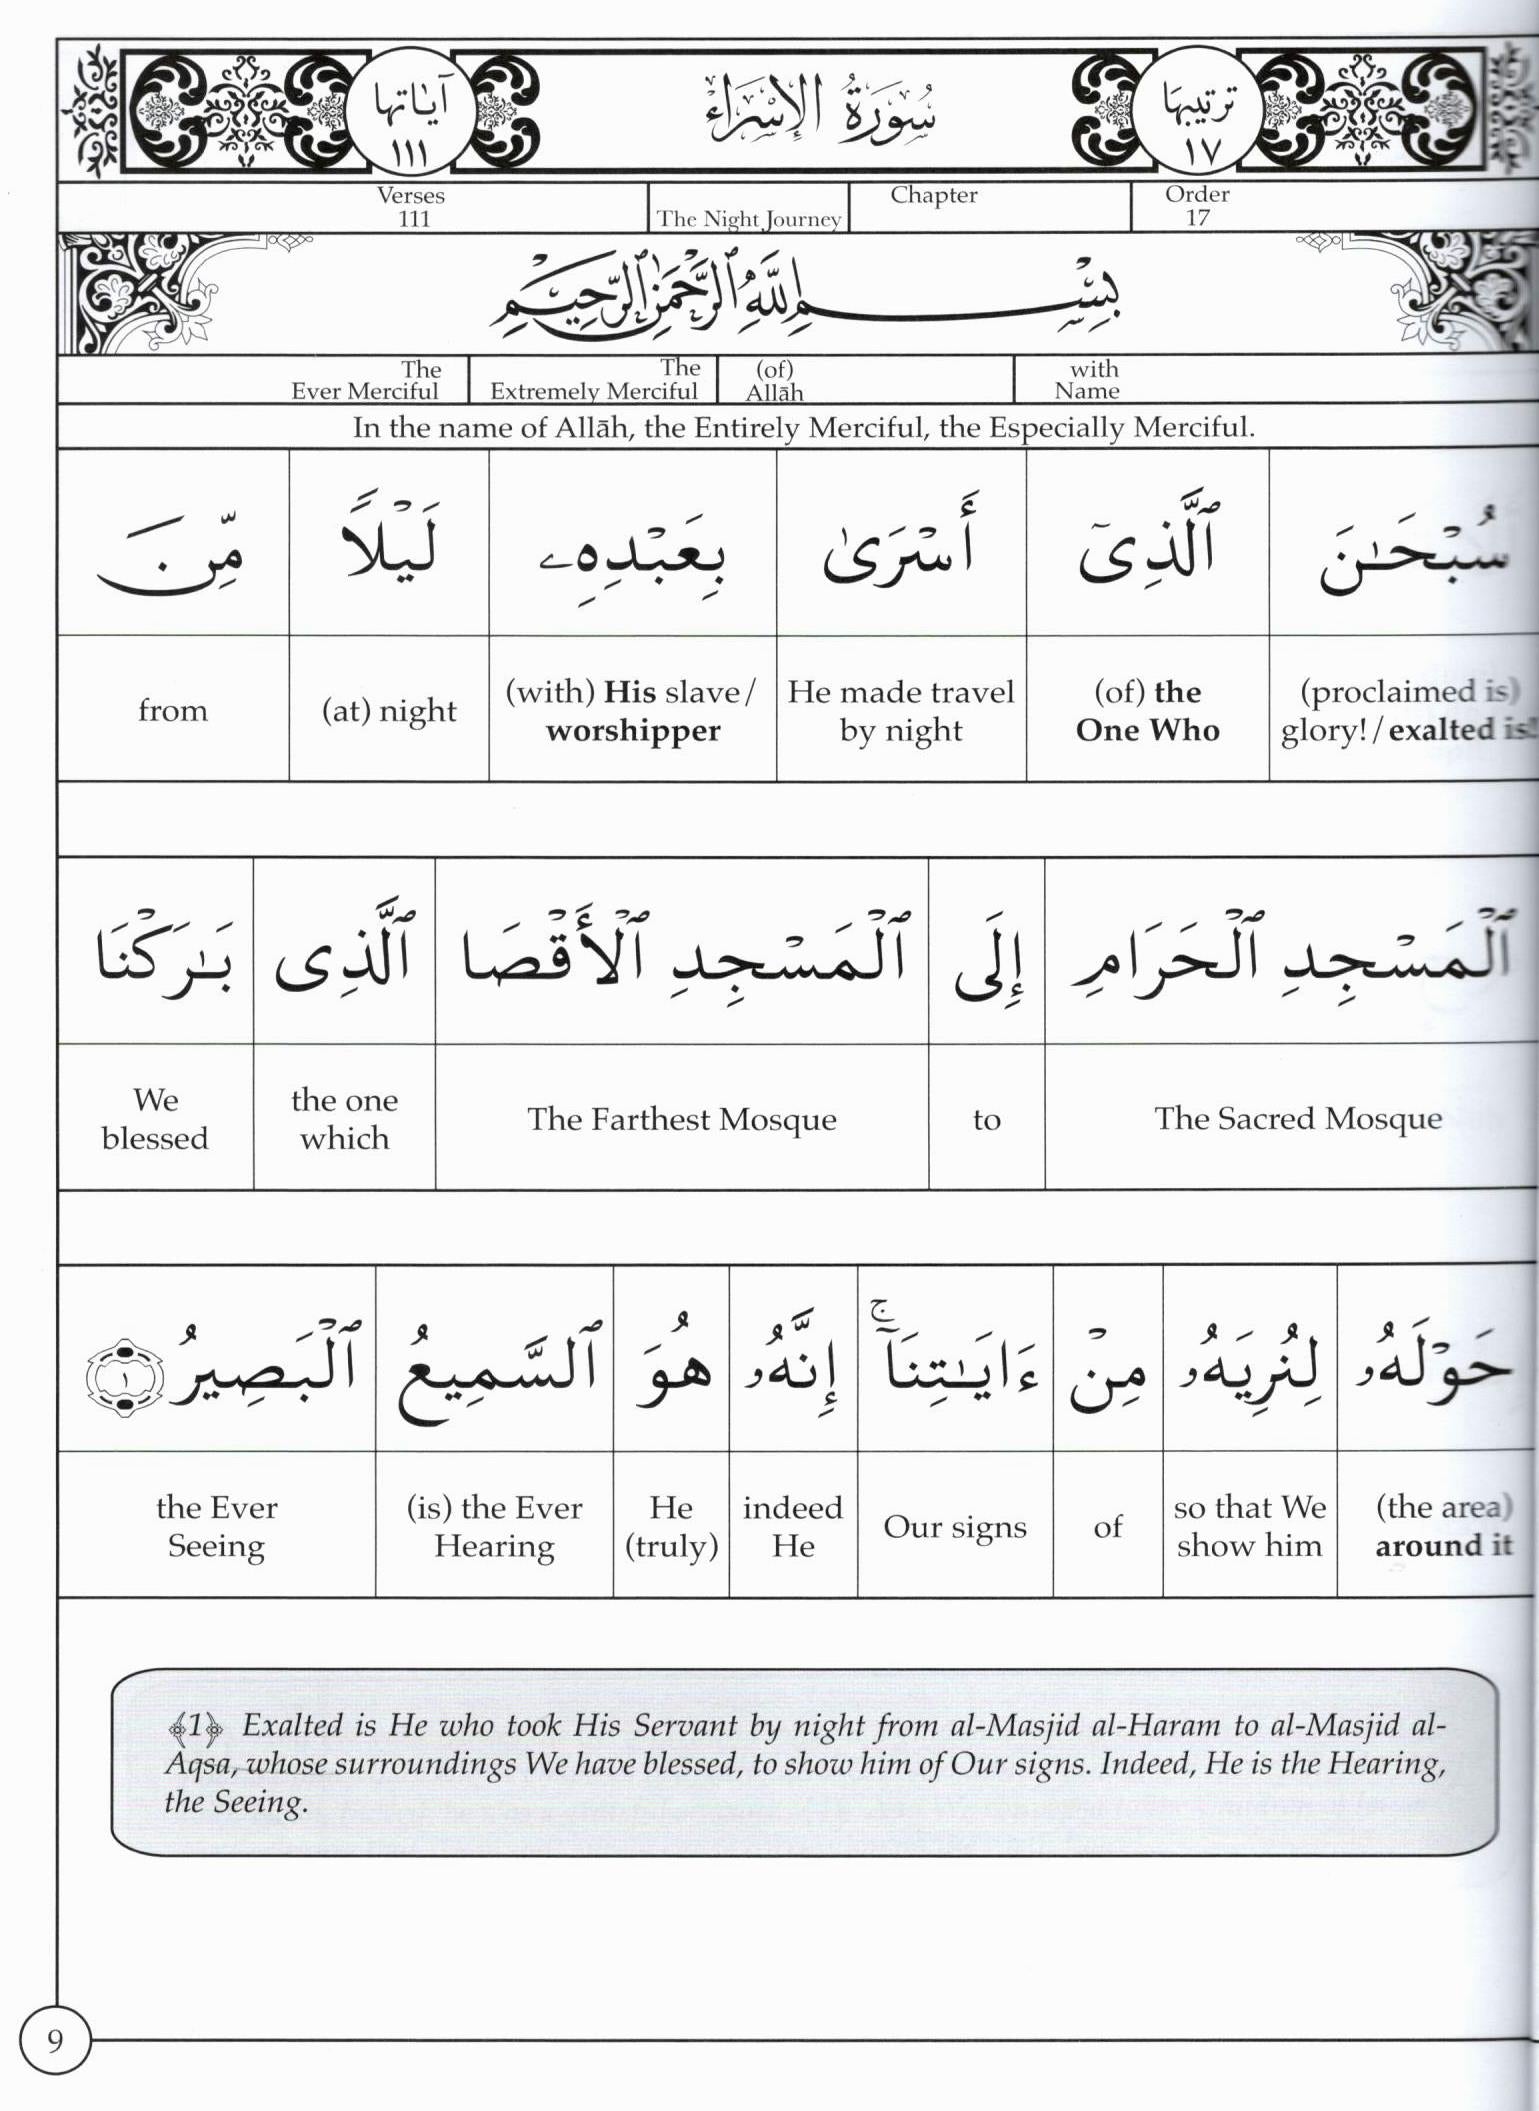 ترتيبها ١٧ سُورَةُ الإِسْرَاءِ آيَاتها ١١١
Order 17 Chapter The Night Journey Verses 111
بِسْمِ ٱللَّهِ ٱلرَّحْمَٰنِ ٱلرَّحِيمِ
with Name (of) Allāh The Extremely Merciful The Ever Merciful
In the name of Allāh, the Entirely Merciful, the Especially Merciful.
سُبْحَـٰنَ ٱلَّذِىٓ أَسْرَىٰ بِعَبْدِهِۦ لَيْلًا مِّنَ
(proclaimed is) glory!/exalted is! (of) the One Who He made travel by night (with) His slave/worshipper (at) night from
ٱلْمَسْجِدِ ٱلْحَرَامِ إِلَى ٱلْمَسْجِدِ ٱلْأَقْصَا ٱلَّذِى بَـٰرَكْنَا
The Sacred Mosque to The Farthest Mosque the one which We blessed
حَوْلَهُۥ لِنُرِيَهُۥ مِنْ ءَايَـٰتِنَآ ۚ إِنَّهُۥ هُوَ ٱلسَّمِيعُ ٱلْبَصِيرُ ١
(the area) around it so that We show him of Our signs indeed He He (truly) (is) the Ever Hearing the Ever Seeing
﴾1﴿ Exalted is He who took His Servant by night from al-Masjid al-Haram to al-Masjid al-
Aqsa, whose surroundings We have blessed, to show him of Our signs. Indeed, He is the Hearing,
the Seeing.
9